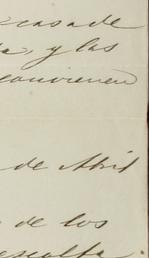 casa de
, y las
convienen
de Abril
de los
escolta.